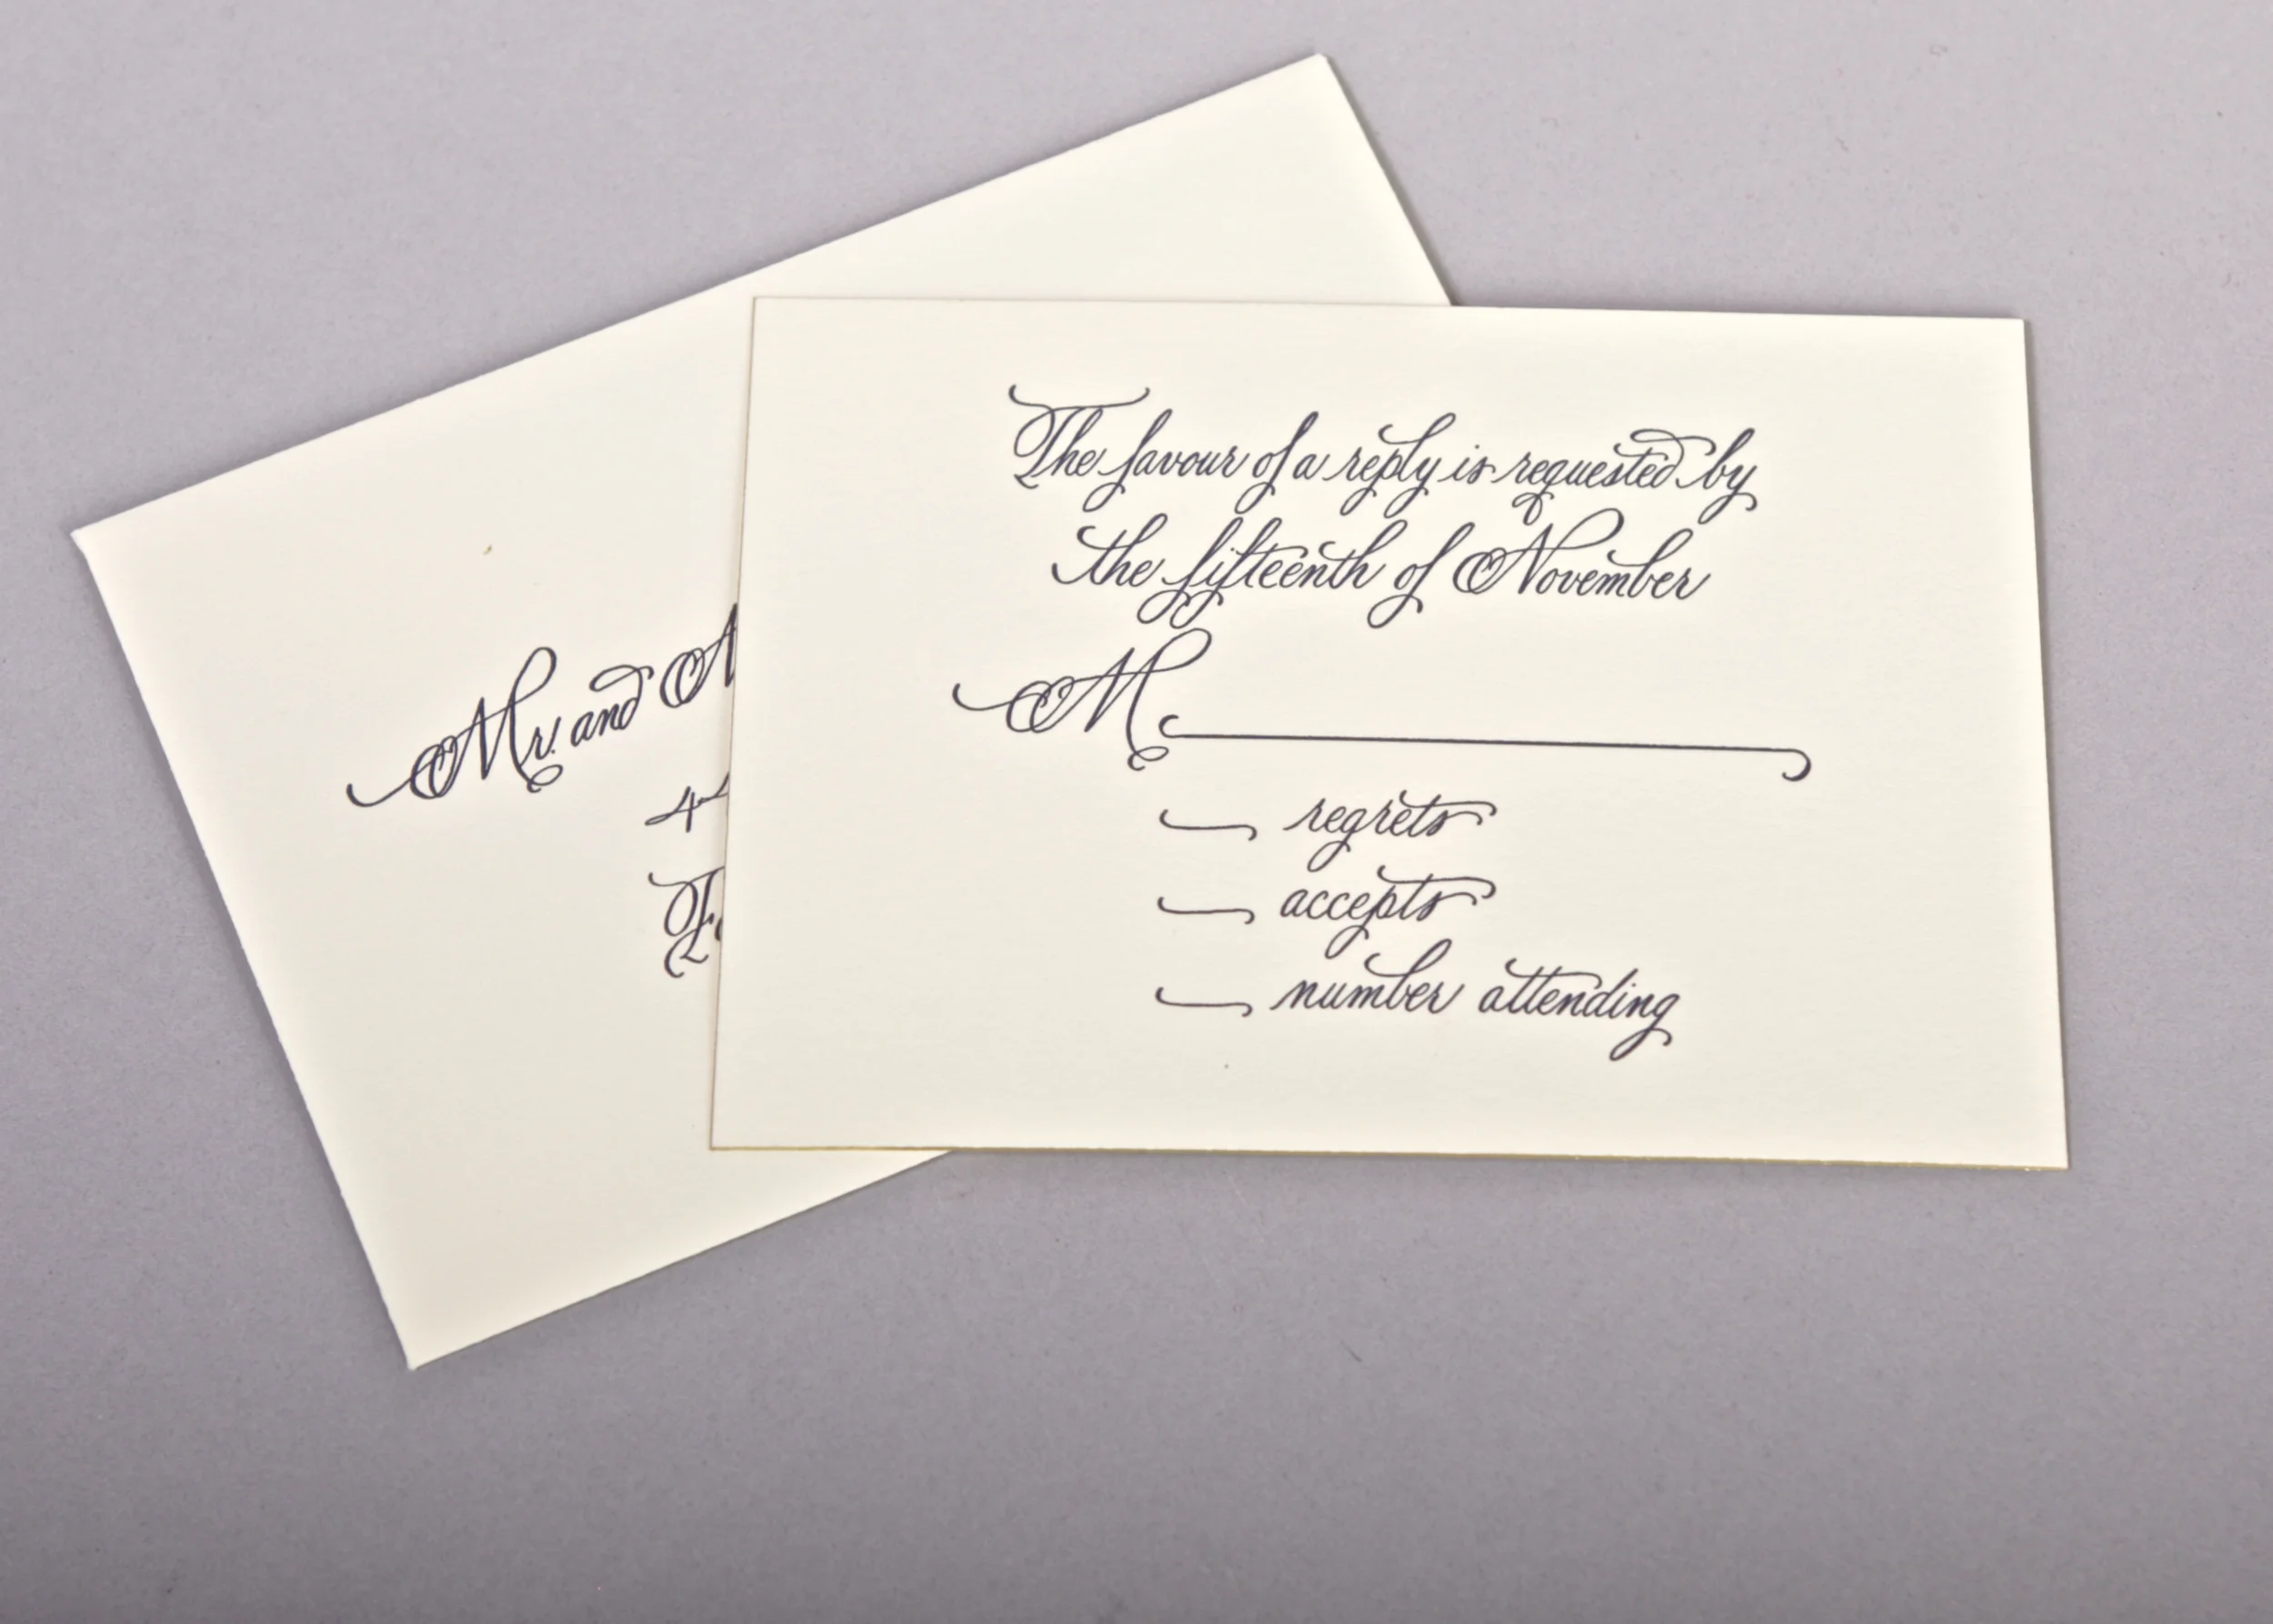 The favour of a reply is requested by
the fifteenth of November
M
regrets
accepts
number attending
Mr. and